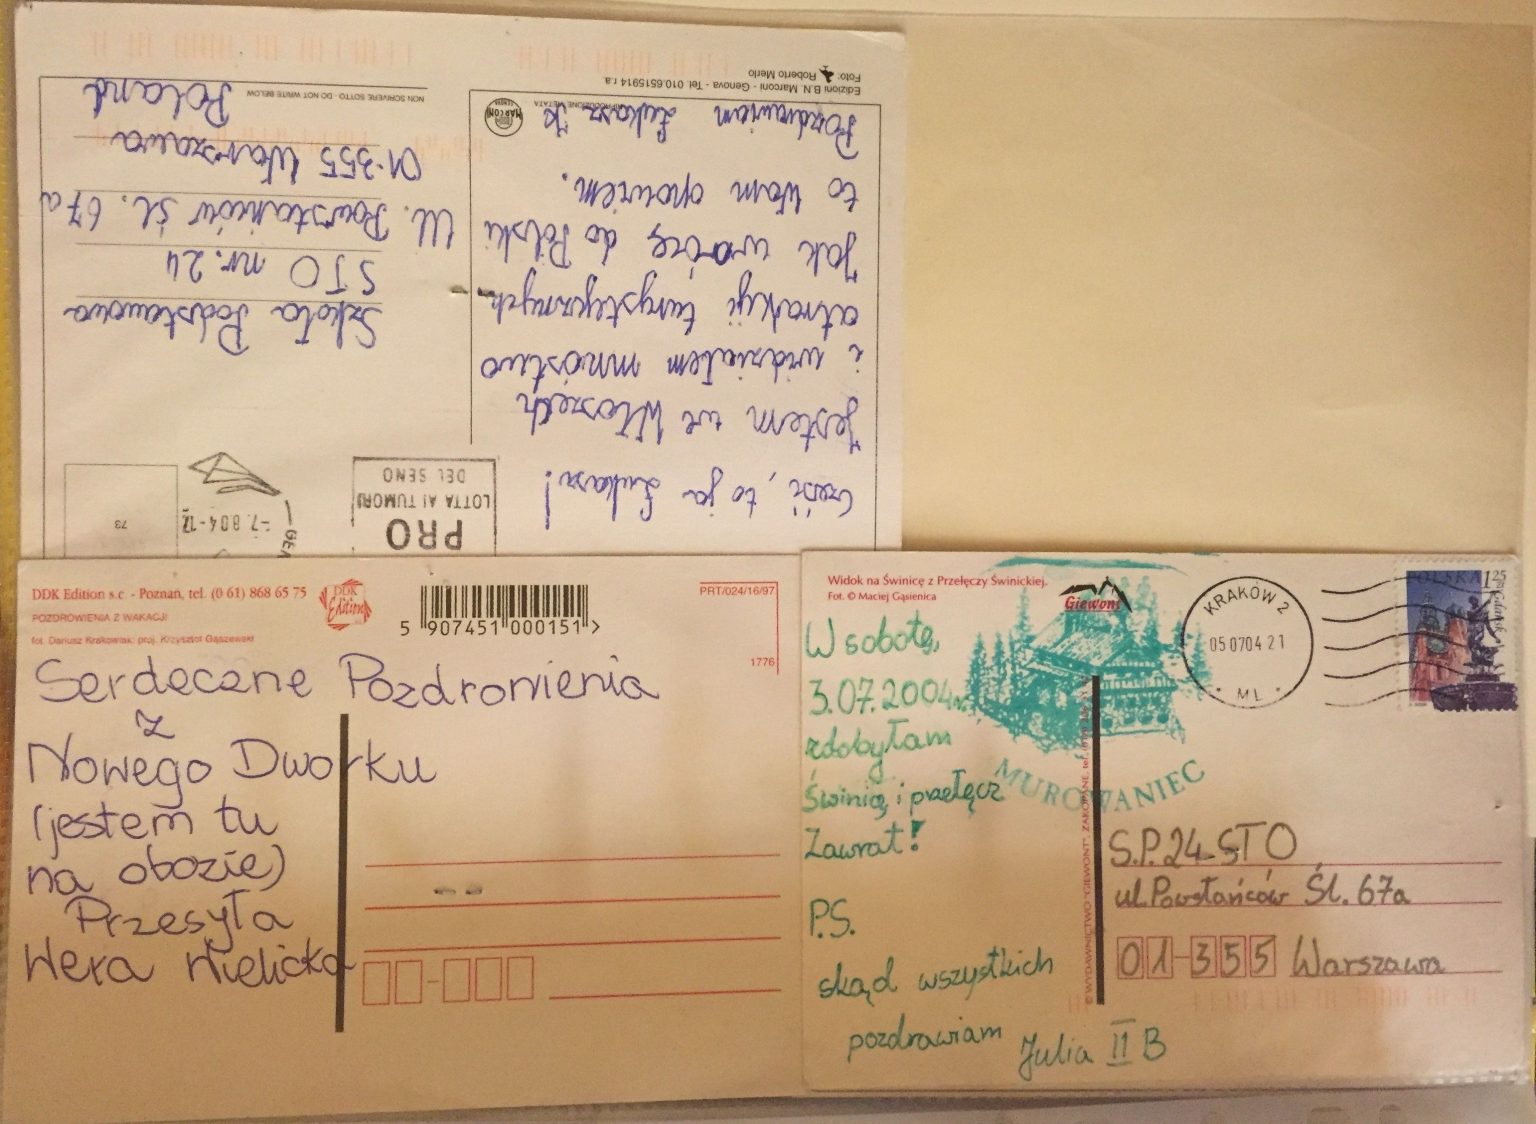 Edizioni B.N. Marconi - Genova - Tel. 010.6515914 r.a.
Foto: Roberto Merlo
RIPRODUZIONE VIETATA
MARCONI
GENOVA
NON SCRIVERE SOTTO - DO NOT WRITE BELOW
Cześć, to ja Łukasz!
Jestem we Włoszech
i widziałem mnóstwo
atrakyji turystycznych
jak worócę do Polski
to Wam opowiem.
Pozdrawiam Łukasz K
PRO
LOTTA AI TUMORI
DEL SENO
-7.8.04-12
73
Szkoła Podstawowa
STO nr. 24
Ul. Powstańców śl. 67a
01-355 Warszawa
Poland
DDK Edition s.c. - Poznań, tel. (0 61) 868 65 75
POZDROWIENIA Z WAKACJI
fot. Dariusz Krakowiak; proj. Krzysztof Gąszewski
DDK
Edition
5 907451 000151 >
PRT/024/16/97
1776
Serdeczne Pozdrowienia
z
Nowego Dworku
(jestem tu
na obozie)
Przesyła
Wera Wielicka
Widok na Świnicę z Przełęczy Świnickiej.
Fot. © Maciej Gąsienica
Giewont
KRAKÓW 2
05.07.04 21
ML
POLSKA 1,25
Gdańsk
W sobotę,
3.07.2004r.
zdobyłam
Świnicę i przełęcz
Zawrat!
P.S.
skąd wszystkich
pozdrawiam
Julia II B
MUROWANIEC
© WYDAWNICTWO "GIEWONT", ZAKOPANE, tel.
S.P. 24 STO
ul. Powstańców Śl. 67a
01-355 Warszawa